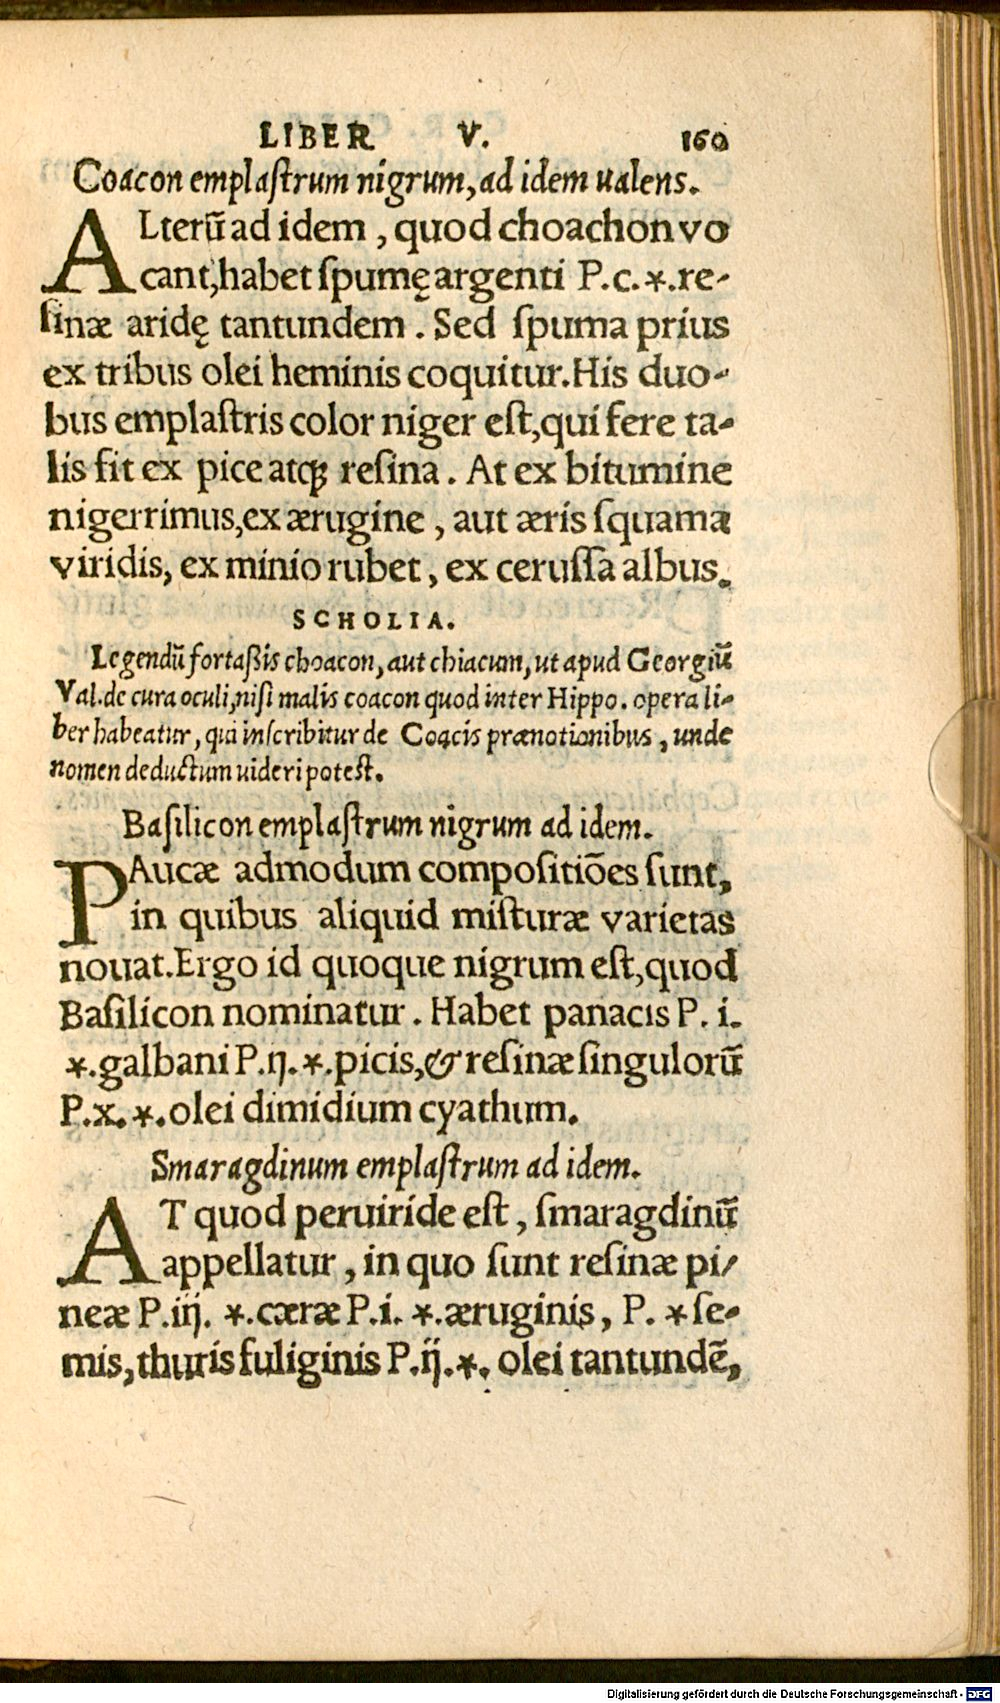 LIBER V. 160
Coacon emplaſtrum nigrum, ad idem ualens.
ALterũ ad idem , quod choachon vo
cant, habet ſpumę argenti P.c.*.re-
ſinæ aridę tantundem . Sed ſpuma prius
ex tribus olei heminis coquitur. His duo-
bus emplaſtris color niger eſt, qui fere ta-
lis fit ex pice atq; reſina . At ex bitumine
nigerrimus, ex ærugine , aut æris ſquama
viridis, ex minio rubet , ex ceruſſa albus.
SCHOLIA.
Legendũ fortaßis choacon, aut chiacum, ut apud Georgiũ
Val. de cura oculi, niſi malis coacon quod inter Hippo. opera li-
ber habeatur , qui inſcribitur de Coacis prænotionibus , unde
nomen deductum uideri poteſt.
Baſilicon emplaſtrum nigrum ad idem.
PAucæ admodum compoſitiões ſunt,
in quibus aliquid miſturæ varietas
nouat. Ergo id quoque nigrum eſt, quod
Baſilicon nominatur . Habet panacis P. i.
*.galbani P.ij.*.picis, & reſinæ ſingulorũ
P.x.*.olei dimidium cyathum.
Smaragdinum emplaſtrum ad idem.
AT quod peruiride eſt , ſmaragdinũ
appellatur , in quo ſunt reſinæ pi/
neæ P.iij. *.cæræ P.i. *.æruginis , P. * ſe-
mis, thuris fuliginis P.ij.*. olei tantundẽ,
Digitalisierung gefördert durch die Deutsche Forschungsgemeinschaft - DFG